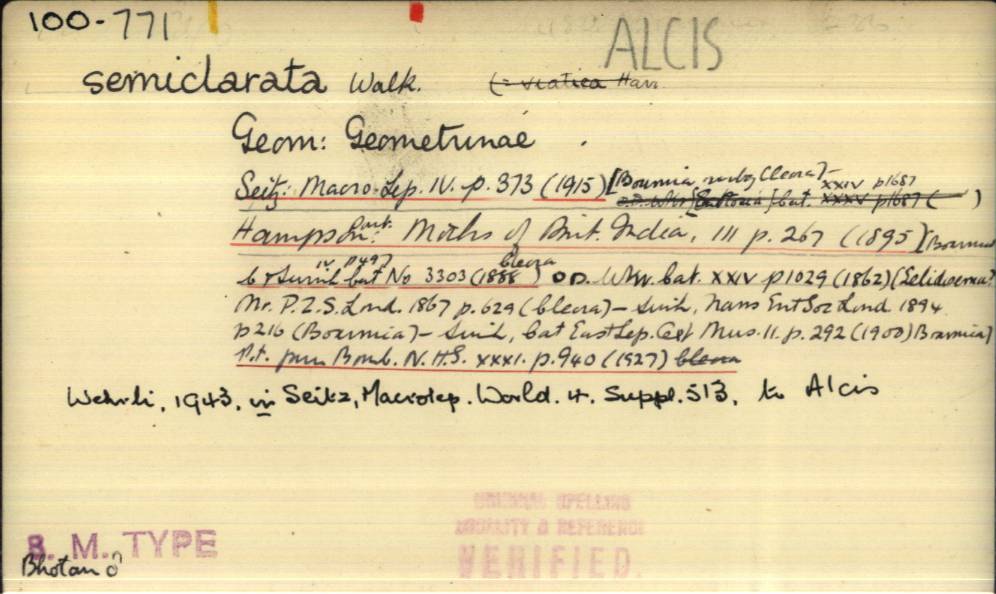 100-771
ALCIS
semiclarata Walk. (= viatica Harr
Geom: Geometrinae
Seitz: Macro-Lep. IV. p. 373 (1915) [Boumia, subg Cleora]-
XXIV p1687
cat. XXXV p1687 ( )
Hampson: Moths of Brit. India, III p. 267 (1895) [Boumia
IV p497 Cleora
Cat No 3303 (1888) O.D. Wkr. Cat. XXIV p1029 (1862) (Selidosema?
Mr. P.Z.S. Lond. 1867 p. 629 (Cleora) – Swinh, Trans Ent Soc Lond. 1894
p216 (Boumia) – Swinh, Cat East Lep. Oxf Mus. 11. p. 292 (1900) Boumia)
Bomb. N.H.S. XXXI. p. 940 (1927) Cleora
Wehrli, 1943, in Seitz, Macrolep. World. 4. Suppl. 513, to Alcis
ORIGINAL SPELLING
LOCALITY & REFERENCE
VERIFIED.
B. M. TYPE
Bhotan ♂